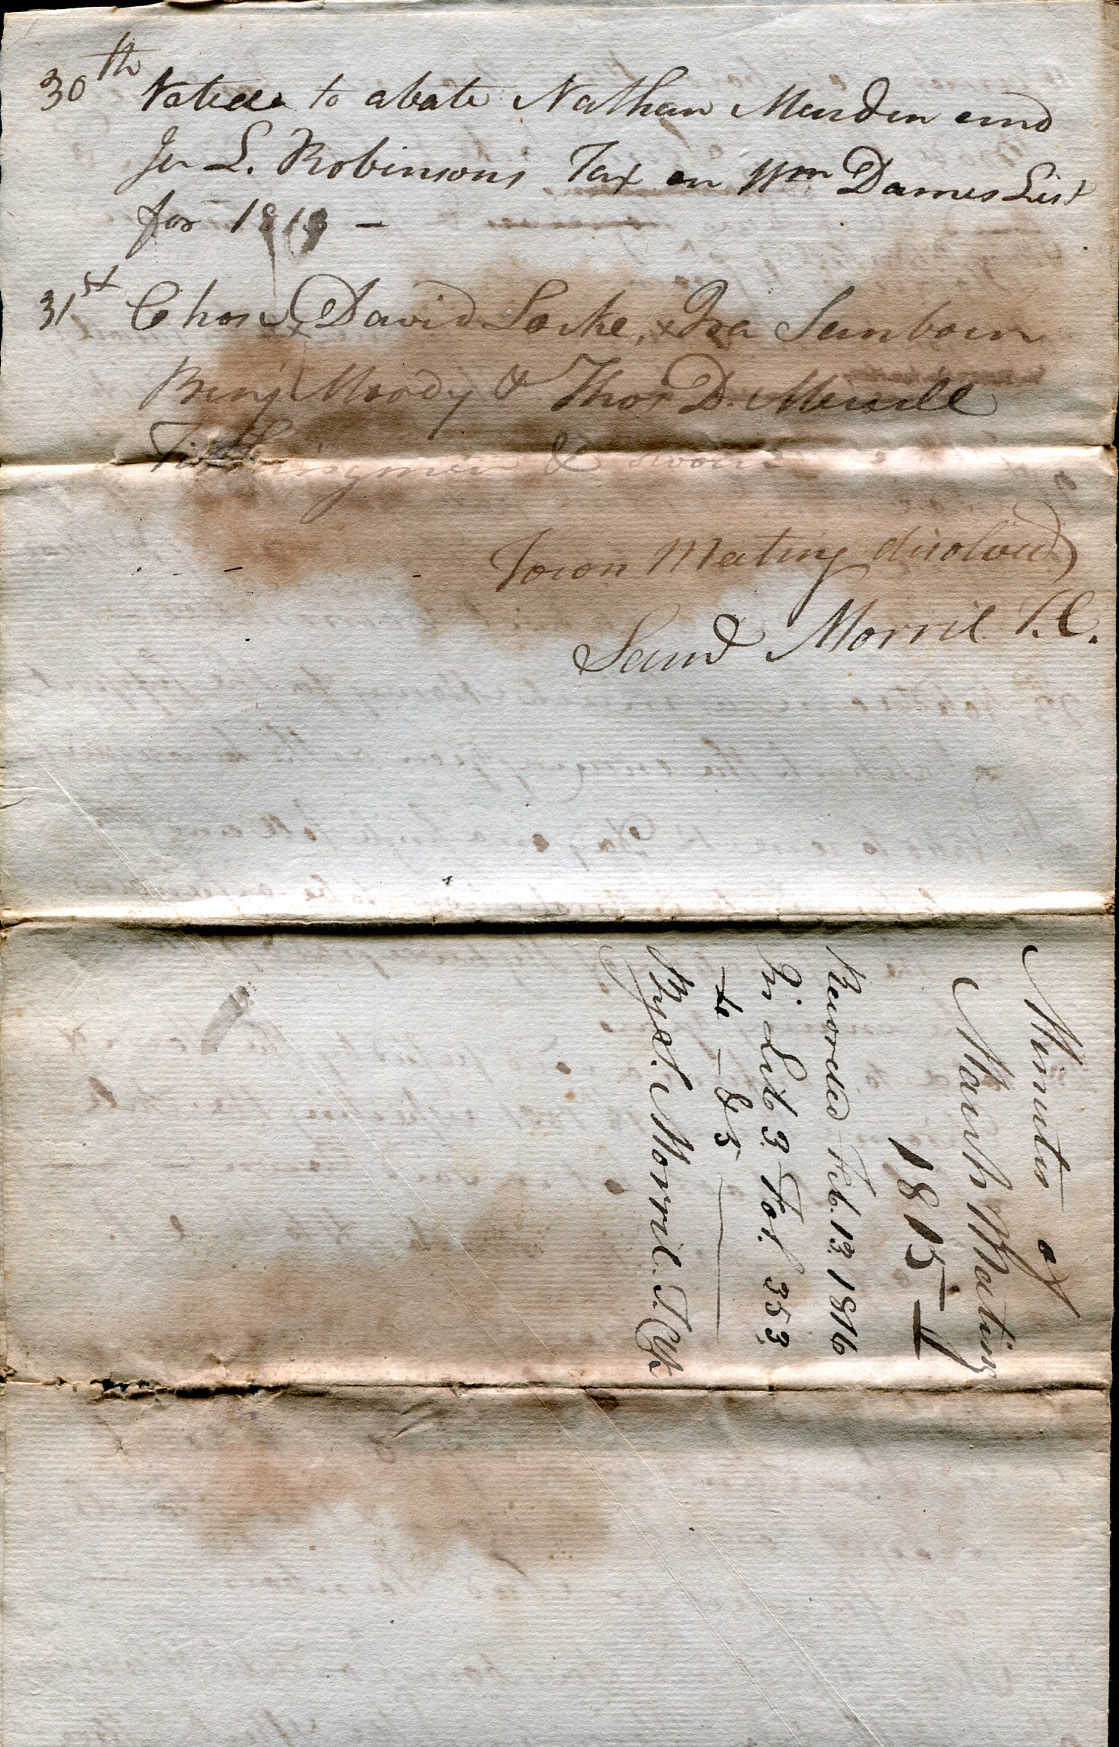 30th Voted to abate Nathan and
L. Robinsons Tax on Wm Dames List
for 181 –
31st Chose David Locke, Ira Sanborn
Benj Moody & Thos D. Merrill
Tithingmen & sworn
Town Meeting disolved
Saml Morril T.C.
Minutes of
March Meeting
1815
Recorded Feb. 13. 1816
In Lib 3. Fol. 353
to – 85
By S. Morril. T. Clk